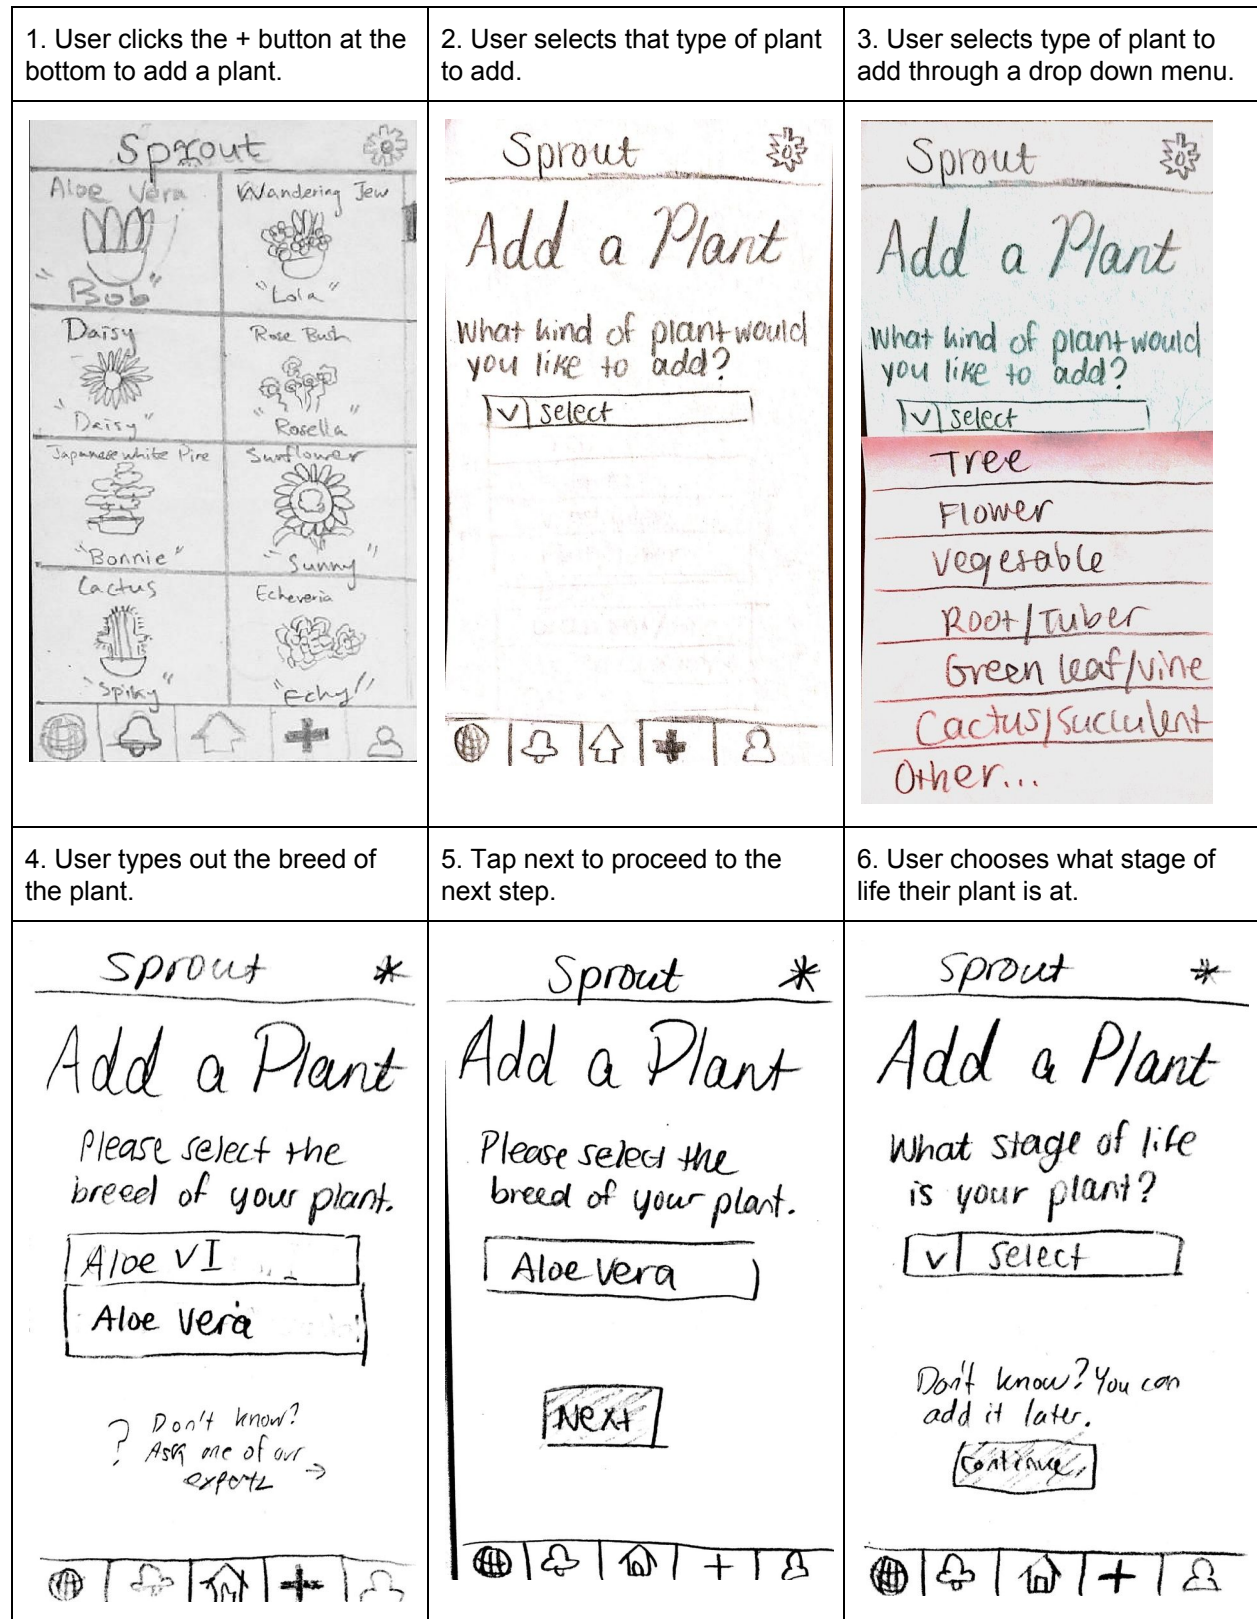 1. User clicks the + button at the
bottom to add a plant.
2. User selects that type of plant
to add.
3. User selects type of plant to
add through a drop down menu.
Sprout
Aloe Vera
"Bob"
Wandering Jew
"Lola"
Daisy
"Daisy"
Rose Bush
"Rosella"
Japanese white Pine
"Bonnie"
Sunflower
"Sunny"
Cactus
"Spiky"
Echeveria
"Echy"
Sprout
Add a Plant
What kind of plant would
you like to add?
v select
Sprout
Add a Plant
What kind of plant would
you like to add?
v select
Tree
Flower
Vegetable
Root/Tuber
Green leaf/vine
Cactus/Succulent
Other...
4. User types out the breed of
the plant.
5. Tap next to proceed to the
next step.
6. User chooses what stage of
life their plant is at.
Sprout *
Add a Plant
Please select the
breed of your plant.
Aloe VI
Aloe Vera
? Don't know?
Ask one of our
experts →
Sprout *
Add a Plant
Please select the
breed of your plant.
Aloe Vera
Next
Sprout *
Add a Plant
What stage of life
is your plant?
v select
Don't know? You can
add it later.
Continue